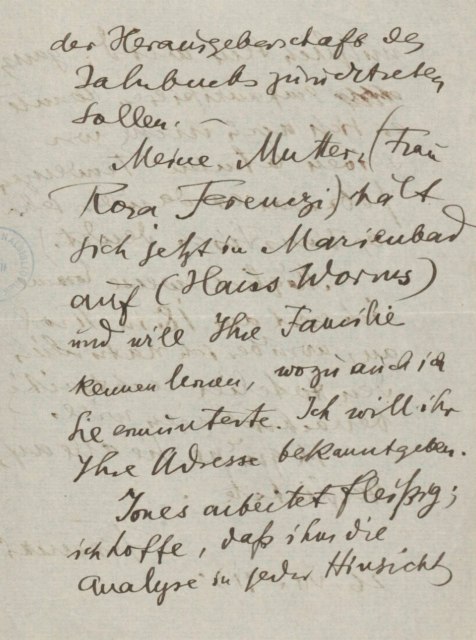 der Herausgeberschaft des
Jahrbuchs zurücktreten
sollen.
Meine Mutter, (Frau
Rosa Ferenczi) hält
sich jetzt in Marienbad
auf (Haus Worms)
und will Ihre Familie
kennen lernen, wozu auch ich
sie ermunterte. Ich will ihr
Ihre Adresse bekanntgeben.
Jones arbeitet fleißig;
ich hoffe, daß ihm die
Analyse in jeder Hinsicht